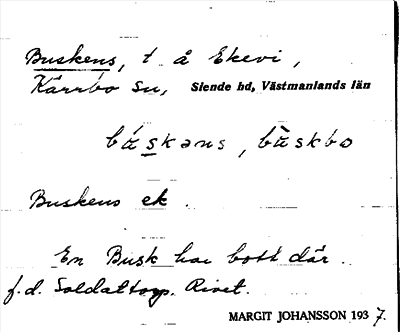 Buskens, t å Ekevi,
Kärrbo sn, Siende hd, Västmanlands län
búskəns, bùskbo
Buskens ek.
En Busk har bott där.
f.d. Soldattorp. Rivet.
MARGIT JOHANSSON 1937.